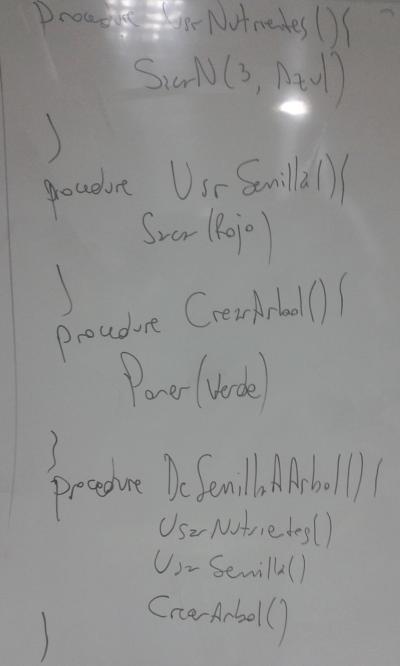 Procedure UsrNutrientes(){
SacarN(3, Azul)
}
procedure UsrSemilla(){
Sacar(Rojo)
}
procedure CrearArbol(){
Poner(Verde)
}
procedure DeSemillaAArbol(){
UsarNutrientes()
UsarSemilla()
CrearArbol()
}